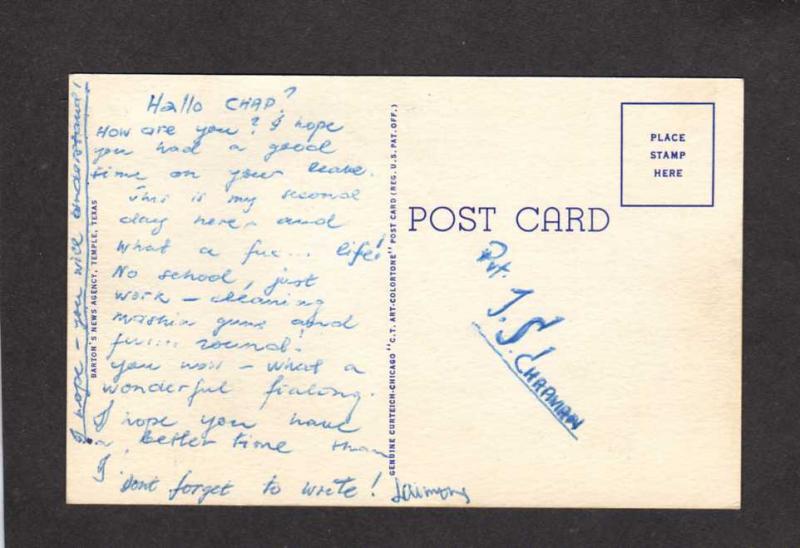 Hallo CHAP!
How are you? I hope
you had a good
time on your leave.
This is my second
day here and
what a fuc... life!
No school, just
work – cleaning
mashin guns and
fuc... round!
you – what a
wonderful
I hope you have
a better time than
I.
Dont forget to write!
I hope – you will understand!
BARTON'S NEWS AGENCY, TEMPLE, TEXAS
GENUINE CURTEICH-CHICAGO "C.T. ART-COLORTONE" POST CARD (REG. U.S. PAT. OFF.)
POST CARD
PLACE
STAMP
HERE
Pvt.
J. S.
CHAPMAN